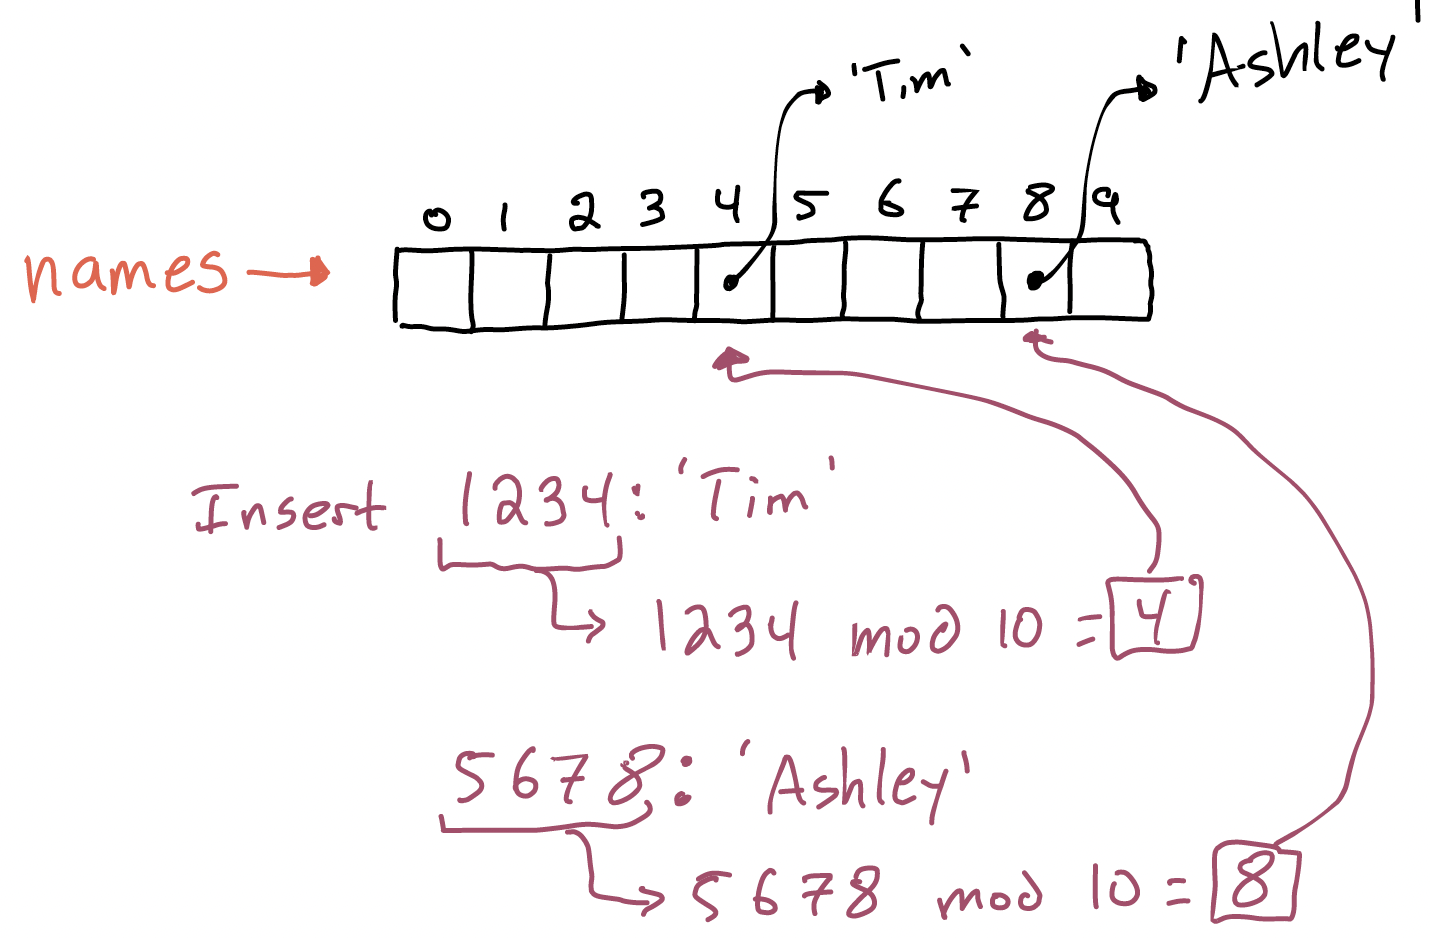 'Tim' 'Ashley'
0 1 2 3 4 5 6 7 8 9
names
Insert 1234: 'Tim'
1234 mod 10 = 4
5678: 'Ashley'
5678 mod 10 = 8